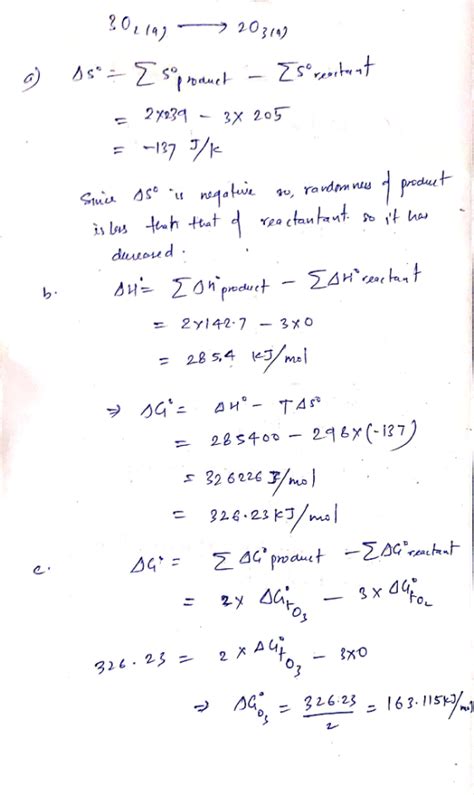 3O2(g) ⟶ 2O3(g)
a) ΔS° = ∑ S°product − ∑S°reactant
= 2×239 − 3×205
= −137 J/K
Since ΔS° is negative so, randomness of product
is less than that of reactantant. so it has
decreased.
b. ΔH° = ∑ΔH°product − ∑ΔH°reactant
= 2×142.7 − 3×0
= 285.4 KJ/mol
⇒ ΔG° = ΔH° − TΔS°
= 285400 − 298×(−137)
= 326226 J/mol
= 326.23 KJ/mol
c. ΔG° = ∑ΔG°product − ∑ΔG°reactant
= 2× ΔG°fO3 − 3×ΔG°fO2
326.23 = 2×ΔG°fO3 − 3×0
⇒ ΔG°O3 = 326.23/2 = 163.115KJ/mol